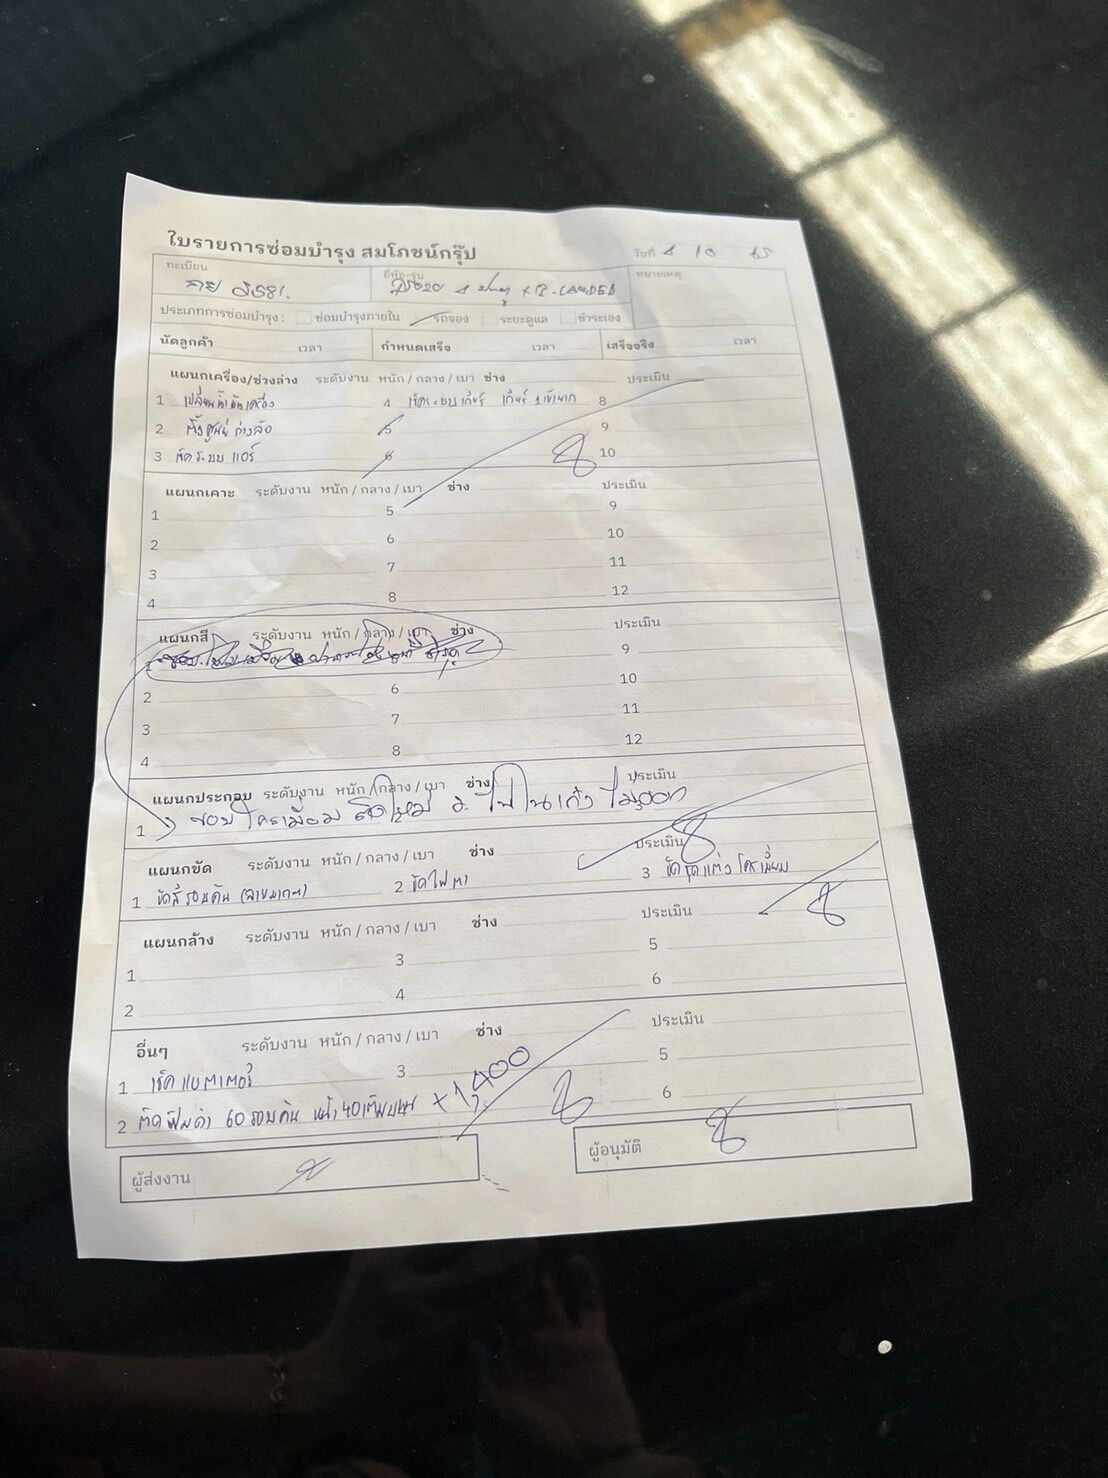 ใบรายการซ่อมบำรุง สมโภชน์กรุ๊ป วันที่ 4 10 65
ทะเบียน ยี่ห้อ-รุ่น หมายเหตุ
ประเภทการซ่อมบำรุง : ซ่อมบำรุงภายใน รถจอง ระยะดูแล ชำระเอง
นัดลูกค้า เวลา กำหนดเสร็จ เวลา เสร็จจริง เวลา
แผนกเครื่อง/ช่วงล่าง ระดับงาน หนัก / กลาง / เบา ช่าง ประเมิน
1 เปลี่ยนน้ำมันเครื่อง 4 เช็คระบบเกียร์ เกียร์ 8
2 ตั้งศูนย์ถ่วงล้อ 5 9
3 เช็คระบบแอร์ 6 10
แผนกเคาะ ระดับงาน หนัก / กลาง / เบา ช่าง ประเมิน
1 5 9
2 6 10
3 7 11
4 8 12
แผนกสี ระดับงาน หนัก / กลาง / เบา ช่าง ประเมิน
9
2 6 10
3 7 11
4 8 12
แผนกประกอบ ระดับงาน หนัก / กลาง / เบา ช่าง ประเมิน
1 ไฟในเก๋ง ไม่ออก
แผนกขัด ระดับงาน หนัก / กลาง / เบา ช่าง ประเมิน
1 ขัดสีรอบคัน (ลายมาก) 2 ขัดไฟตา 3 ขัดชุดแต่งโครเมี่ยม
แผนกล้าง ระดับงาน หนัก / กลาง / เบา ช่าง ประเมิน
1 3 5
2 4 6
อื่นๆ ระดับงาน หนัก / กลาง / เบา ช่าง ประเมิน
1 เช็คแบตเตอรี่ 3 5
2 ติดฟิล์มดำ 60 รอบคัน หน้า 40 เต็มบาน + 1,400 6
ผู้ส่งงาน ผู้อนุมัติ